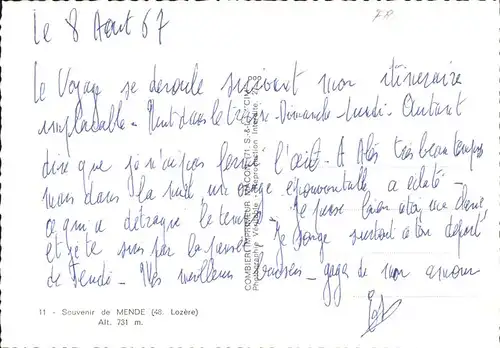 78
le 8 Aout 67
Le Voyage se deroule suivant mon itineraire
implacable - Nuit dans le train - Dimanche Lundi - Autant
dire que je n'ai pas fermé l'œil - A Alès très beau temps
mais dans la nuit un orage épouvantable a éclaté -
ce qui a détraqué le temps - Je pense bien à toi ma
et je te suis par la pensée - Je songe surtout à ton départ
de Jeudi - Mes meilleurs baisers - gage de mon amour
COMBIER IMPRIMEUR MACON
Photographie Véritable - Reproduction Interdite
11 - Souvenir de MENDE (48. Lozère)
Alt. 731 m.